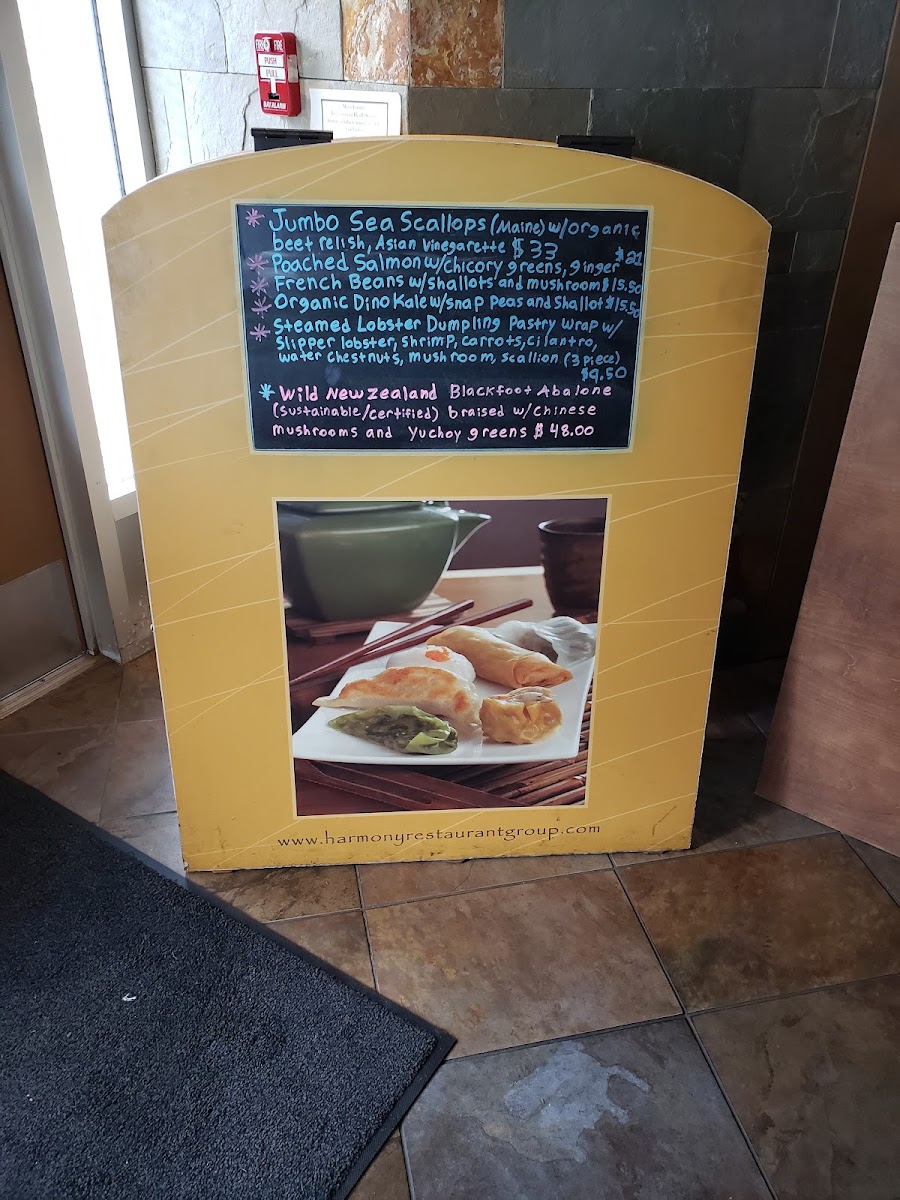 FIRE FIRE
PUSH
PULL
BAYALARM
* Jumbo Sea Scallops (Maine) w/organic
beet relish, Asian Vinegarette $33
* Poached Salmon w/chicory greens, ginger $21
* French Beans w/shallots and mushroom $15.50
* Organic Dino Kale w/snap peas and shallot $15.50
* Steamed Lobster Dumpling Pastry wrap w/
Slipper lobster, shrimp, carrots, cilantro,
water chestnuts, mushroom, scallion (3 piece)
$9.50
* Wild New Zealand Blackfoot Abalone
(sustainable/certified) braised w/Chinese
mushrooms and Yuchoy greens $48.00
www.harmonyrestaurantgroup.com